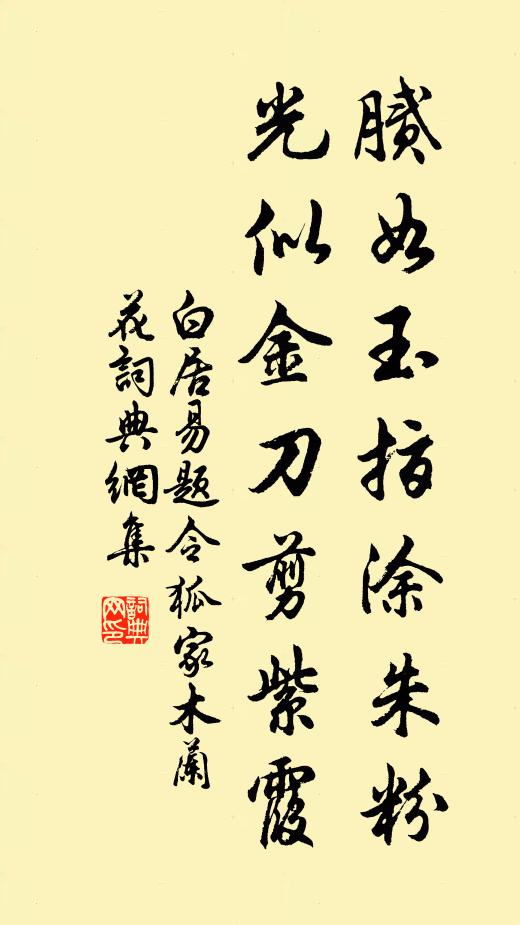 膩如玉指涂朱粉
光似金刀剪紫霞
白居易題令狐家木蘭
花詞典網集
詞典
网印